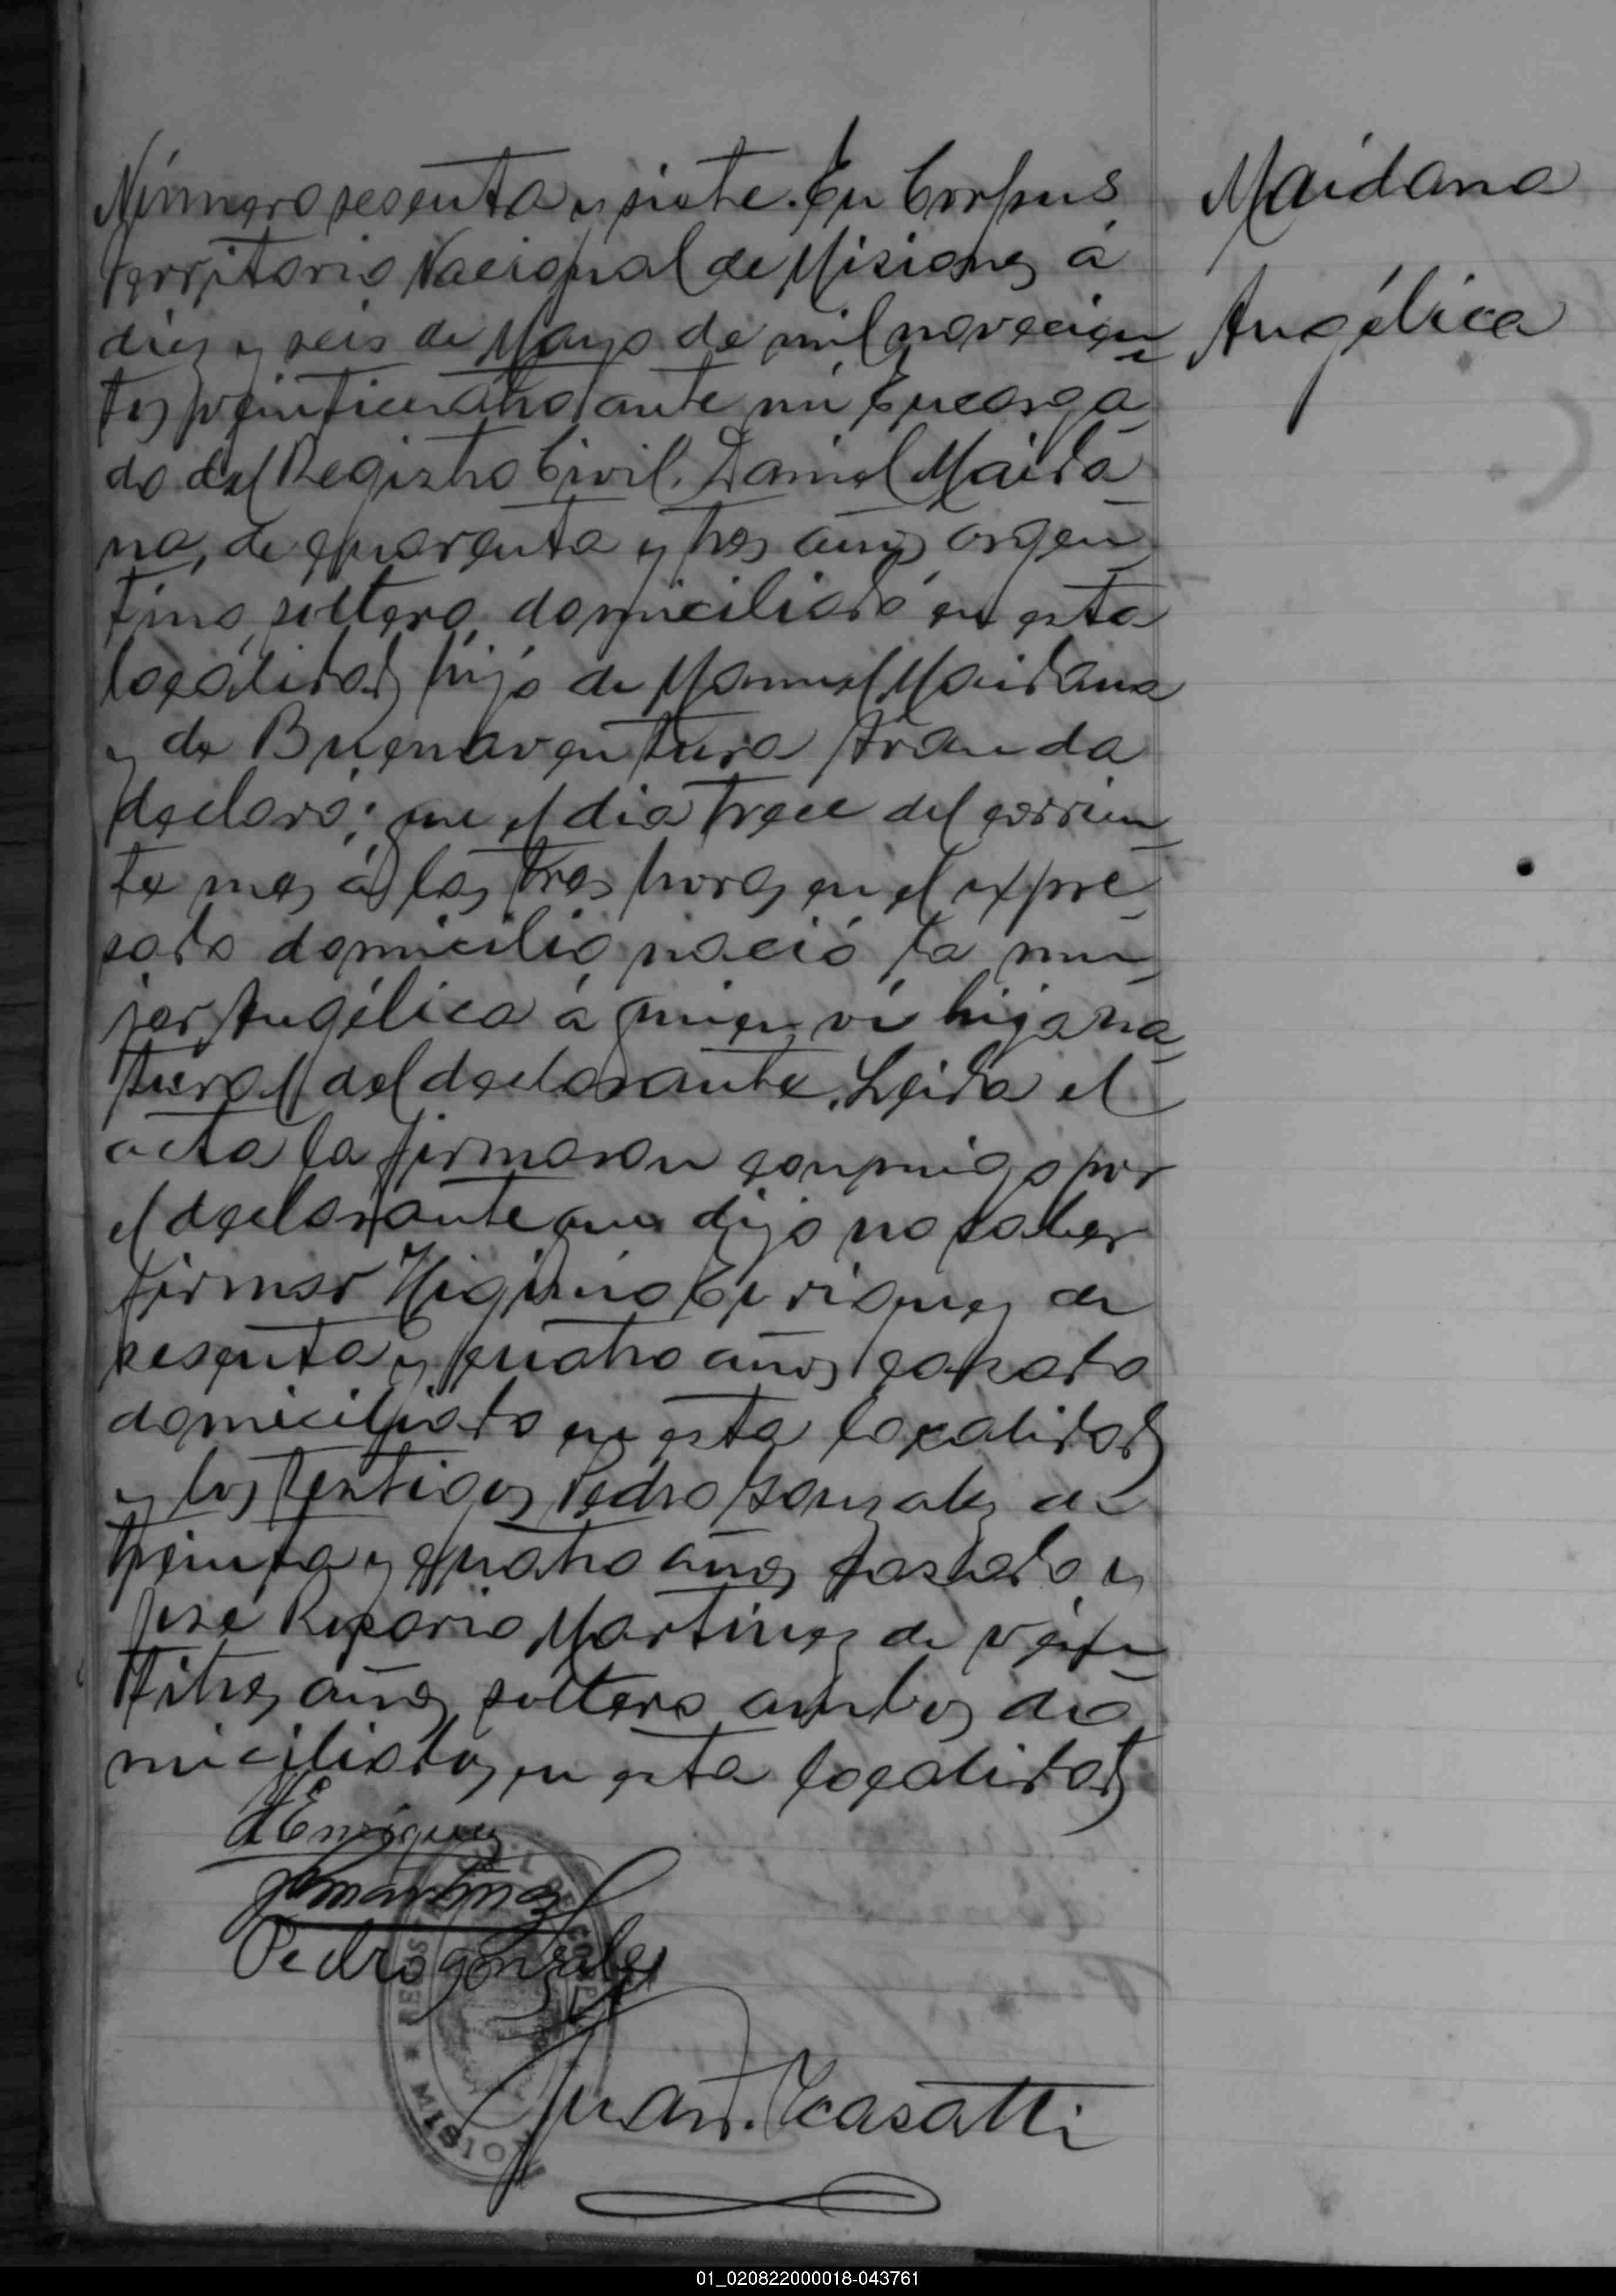 Número sesenta y siete. En Corpus
Territorio Nacional de Misiones á
diez y seis de Mayo de mil novecien
tos veinticuatro ante mí Encarga
do del Registro Civil. Daniel Maida
na, de cuarenta y tres años argen
tino, soltero, domiciliado en esta
localidad, hijo de Manuel Maidana
y de Buenaventura Aranda
declaró: que el dia trece del corrien
te mes á las tres horas en el expre
sado domicilio nació la mu
jer Angélica á quien ví hija na
tural del declarante. Leida el
acta la firmaron conmigo por
el declarante que dijo no saber
firmar Higinio Enriquez de
sesenta y cuatro años casado
domiciliado en esta localidad
y los testigos Pedro Gonzalez de
treinta y cuatro años casado y
José Rosario Martinez de vein
titres años soltero ambos do
miciliados en esta localidad
Maidana
Angélica
H Enriquez
Martinez
Pedro gonzalez
Juan Casatti
REGISTRO CIVIL CORPUS
MISIONES
01_020822000018-043761